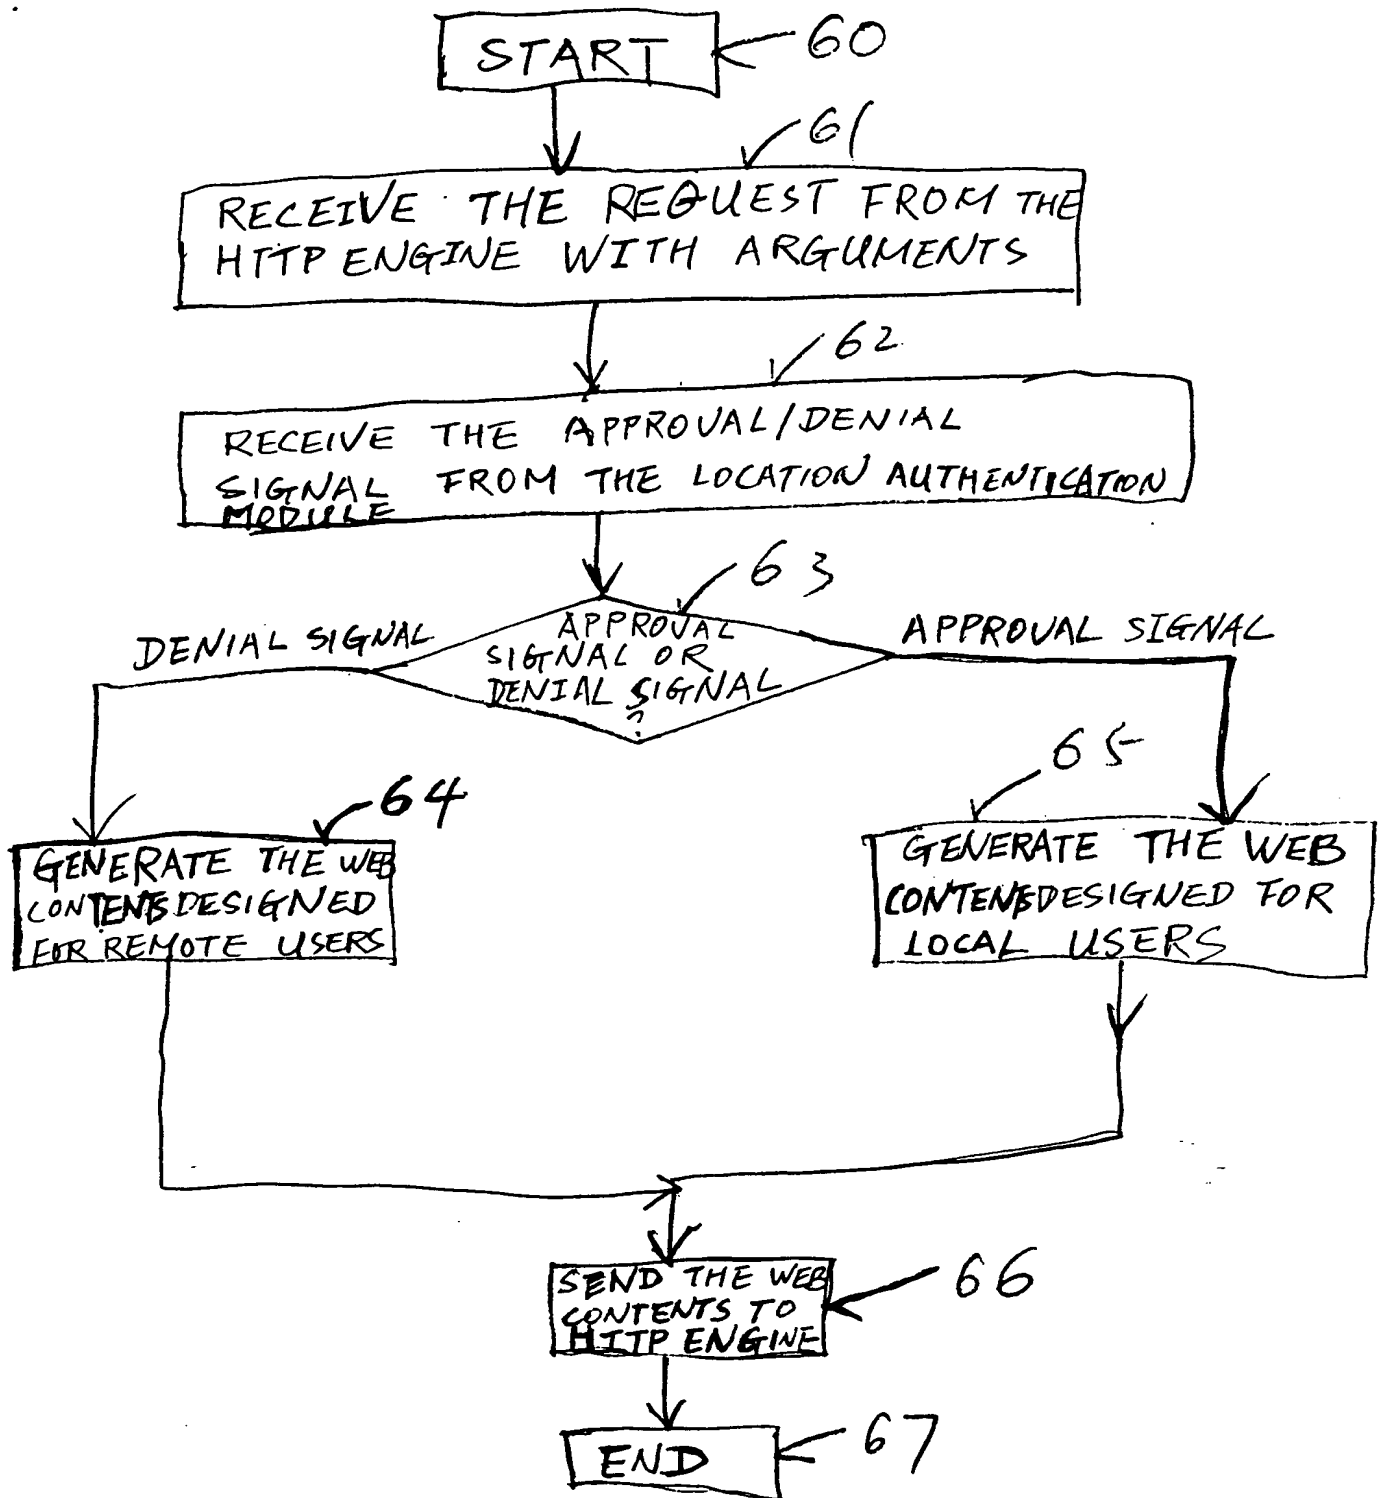 START
60
61
RECEIVE THE REQUEST FROM THE
HTTP ENGINE WITH ARGUMENTS
62
RECEIVE THE APPROVAL/DENIAL
SIGNAL FROM THE LOCATION AUTHENTICATION
MODULE
63
DENIAL SIGNAL
APPROVAL
SIGNAL OR
DENIAL SIGNAL
?
APPROVAL SIGNAL
64
GENERATE THE WEB
CONTENTS DESIGNED
FOR REMOTE USERS
65
GENERATE THE WEB
CONTENTS DESIGNED FOR
LOCAL USERS
66
SEND THE WEB
CONTENTS TO
HTTP ENGINE
END
67